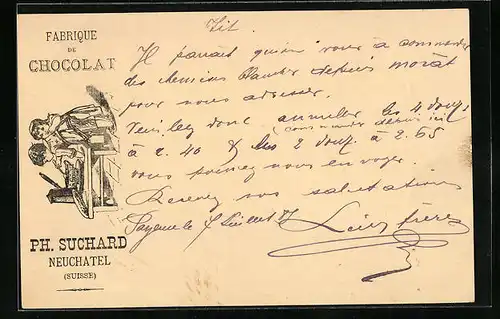 FABRIQUE
DE
CHOCOLAT
PH. SUCHARD
NEUCHATEL
(SUISSE)
Il parait qu'on vous a commandé
des chemises depuis morat
pour nous adresser.
Veuillez donc annuler les 4 douz.
(commandées depuis ici
à 2.40 & les 2 douz. à 2.65
vous pouvez nous envoyer.
Recevez nos salutations
Payerne le Juillet
frères